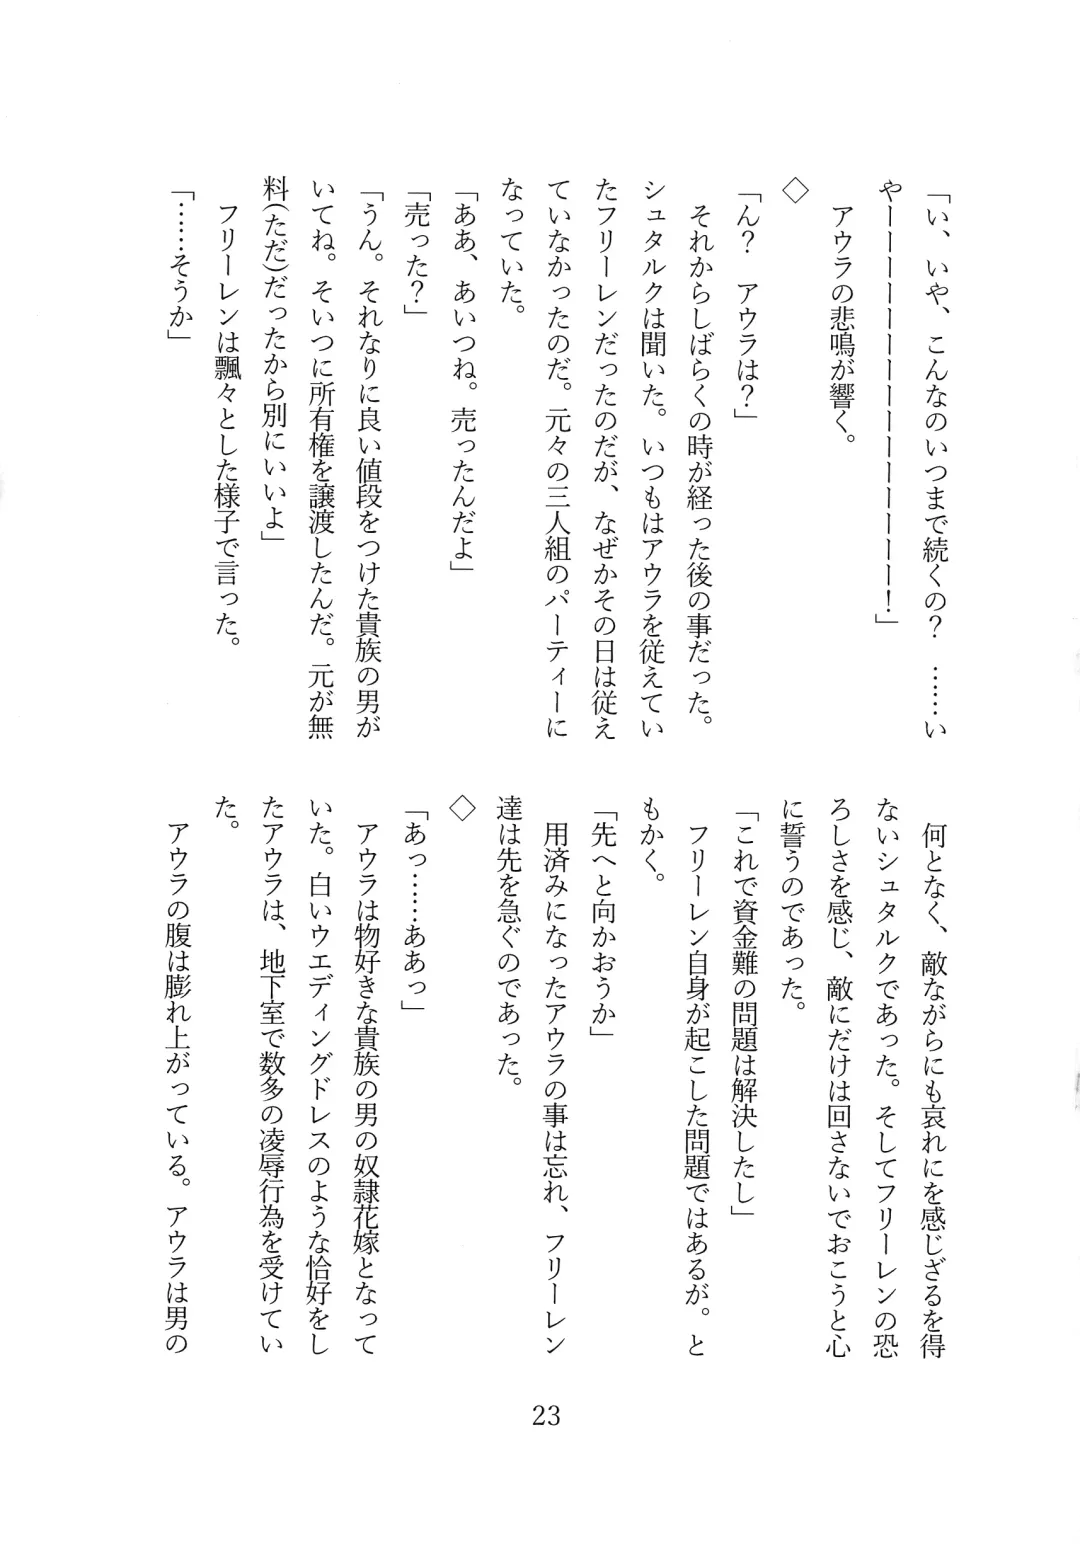 「い、いや、こんなのいつまで続くの？　……い
やーーーーーーーーーーーーーーー！」
アウラの悲鳴が響く。
◇
「ん？　アウラは？」
それからしばらくの時が経った後の事だった。
シュタルクは聞いた。いつもはアウラを従えてい
たフリーレンだったのだが、なぜかその日は従え
ていなかったのだ。元々の三人組のパーティーに
なっていた。
「ああ、あいつね。売ったんだよ」
「売った？」
「うん。それなりに良い値段をつけた貴族の男が
いてね。そいつに所有権を譲渡したんだ。元が無
料(ただ)だったから別にいいよ」
フリーレンは飄々とした様子で言った。
「……そうか」
何となく、敵ながらにも哀れにを感じざるを得
ないシュタルクであった。そしてフリーレンの恐
ろしさを感じ、敵にだけは回さないでおこうと心
に誓うのであった。
「これで資金難の問題は解決したし」
フリーレン自身が起こした問題ではあるが。と
もかく。
「先へと向かおうか」
用済みになったアウラの事は忘れ、フリーレン
達は先を急ぐのであった。
◇
「あっ……ああっ」
アウラは物好きな貴族の男の奴隷花嫁となって
いた。白いウエディングドレスのような恰好をし
たアウラは、地下室で数多の凌辱行為を受けてい
た。
アウラの腹は膨れ上がっている。アウラは男の
23